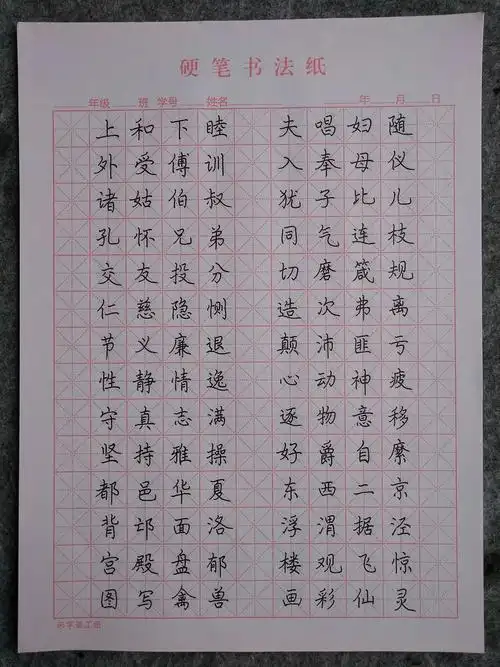 硬笔书法纸
年级 班 学号 姓名 年 月 日
上和下睦 夫唱妇随
外受傅训 入奉母仪
诸姑伯叔 犹子比儿
孔怀兄弟 同气连枝
交友投分 切磨箴规
仁慈隐恻 造次弗离
节义廉退 颠沛匪亏
性静情逸 心动神疲
守真志满 逐物意移
坚持雅操 好爵自縻
都邑华夏 东西二京
背邙面洛 浮渭据泾
宫殿盘郁 楼观飞惊
图写禽兽 画彩仙灵